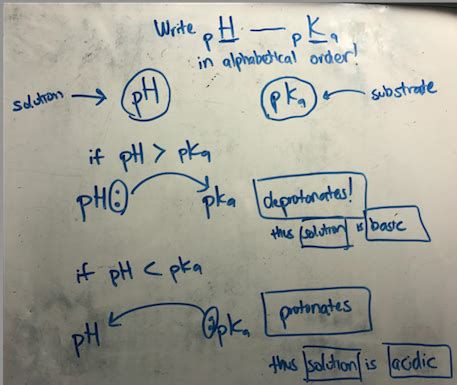 Write pH — pKa
in alphabetical order!
solution → pH pKa ← substrate
if pH > pKa
pH: pKa deprotonates!
thus solution is basic
if pH < pKa
pH :pKa protonates
thus solution is acidic